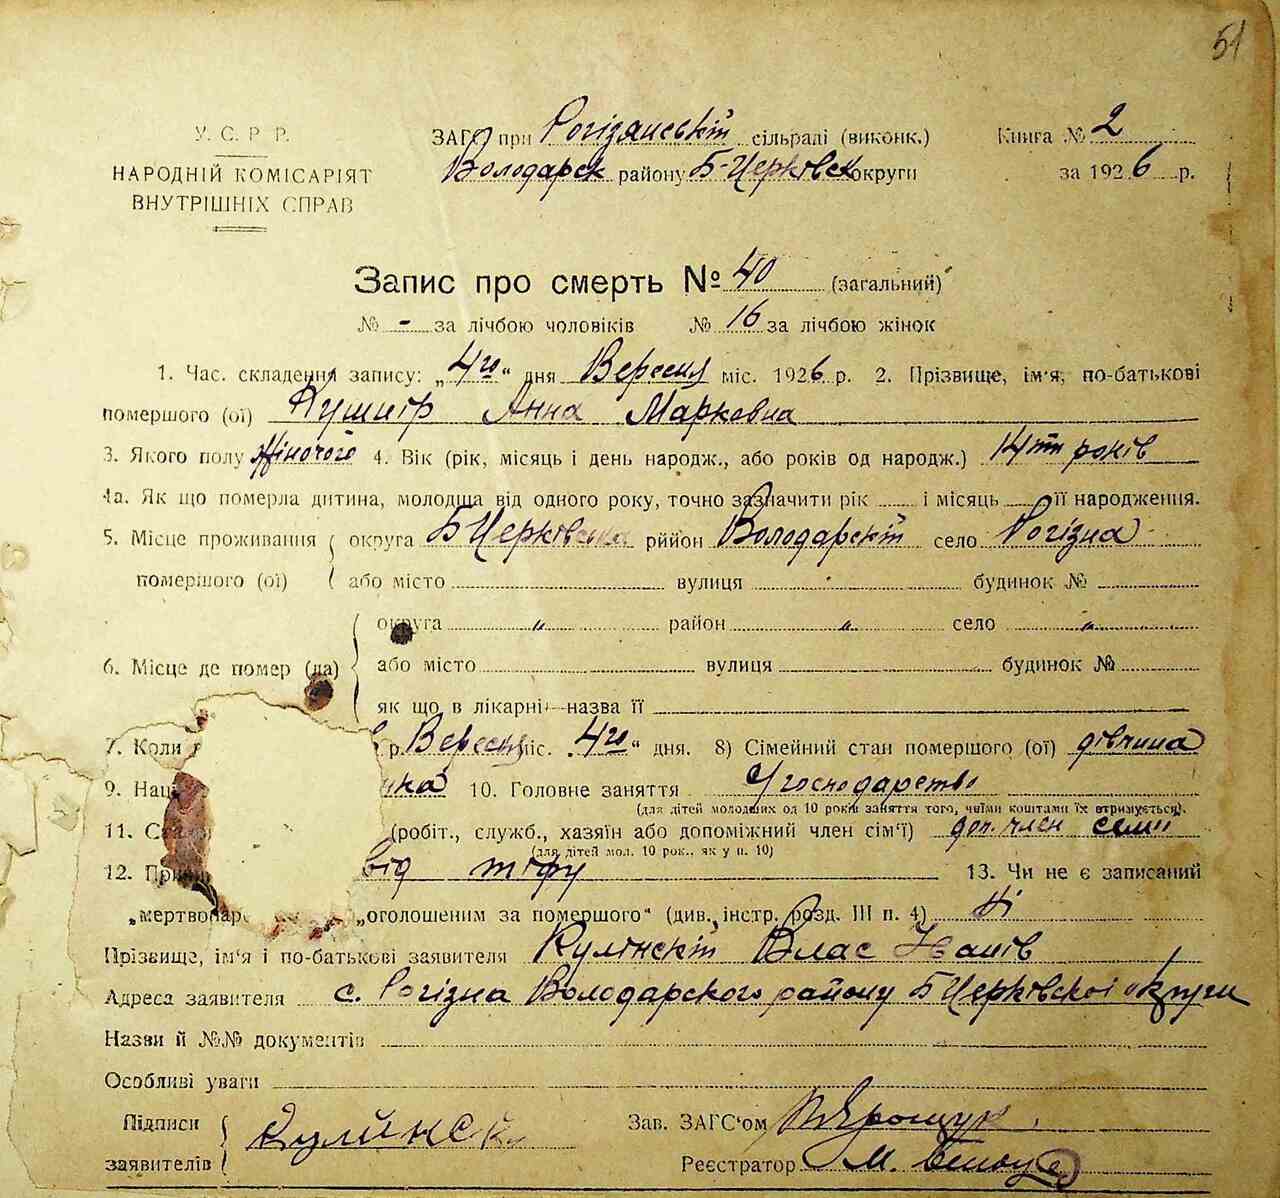 51
У. С. Р. Р.
НАРОДНІЙ КОМІСАРІЯТ
ВНУТРІШНІХ СПРАВ
ЗАГС при Рогізянській сільраді (виконк.)
Володарск району Б-Церковск округи
Книга № 2
за 1926 р.
Запис про смерть № 40 (загальний)
№ - за лічбою чоловіків № 16 за лічбою жінок
1. Час. складення запису: „4го" дня Вересня міс. 1926 р. 2. Прізвище, ім'я, по-батькові
помершого (ої) Кушнір Анна Марковна
3. Якого полу Жіночого 4. Вік (рік, місяць і день народж., або років од народж.) 14ть років
4а. Як що померла дитина, молодша від одного року, точно зазначити рік і місяць її народження.
5. Місце проживання округа БЦерковська рййон Володарскій село Рогізна
помершого (ої) або місто вулиця будинок №
округа „ район „ село „
6. Місце де помер (ла) або місто вулиця будинок №
як що в лікарні—назва її
7. Коли р. Вересня міс. 4го" дня. 8) Сімейний стан помершого (ої) дівчина
9. Наці 10. Головне заняття У господарстві
(для дітей молодших од 10 років заняття того, чиїми коштами їх втримується).
11. (робіт., служб., хазяїн або допоміжний член сім'ї) доп. член семії
(для дітей мол. 10 рок., як у п. 10)
12. від тіфу 13. Чи не є записаний
„мертвонар „оголошеним за помершого" (див. інстр. розд. III п. 4) Ні
Прізвище, ім'я і по-батькові заявителя Кулінскій Влас Іванів
Адреса заявителя с. Рогізна Володарского району БЦерковскої округи
Назви й №№ документів
Особливі уваги
Підписи
заявителів Кулинск
Зав. ЗАГС'ом Ярощук
Реєстратор М.